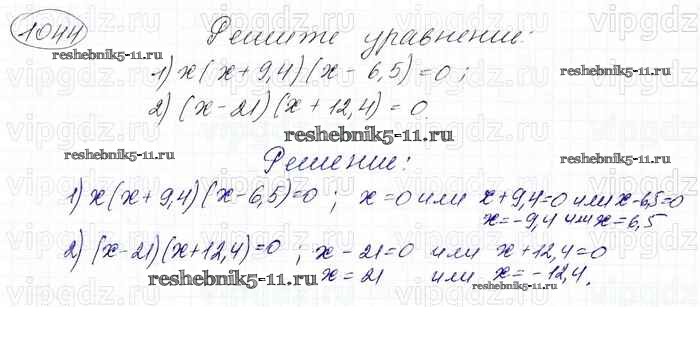 1044 Решите уравнение:
reshebnik5-11.ru
1) x(x+9,4)(x-6,5)=0;
2) (x-21)(x+12,4)=0
reshebnik5-11.ru
Решение:
1) x(x+9,4)(x-6,5)=0; x=0 или x+9,4=0 или x-6,5=0
x=-9,4 или x=6,5
2) (x-21)(x+12,4)=0; x-21=0 или x+12,4=0
x=21 или x=-12,4.
reshebnik5-11.ru
vipgdz.ru